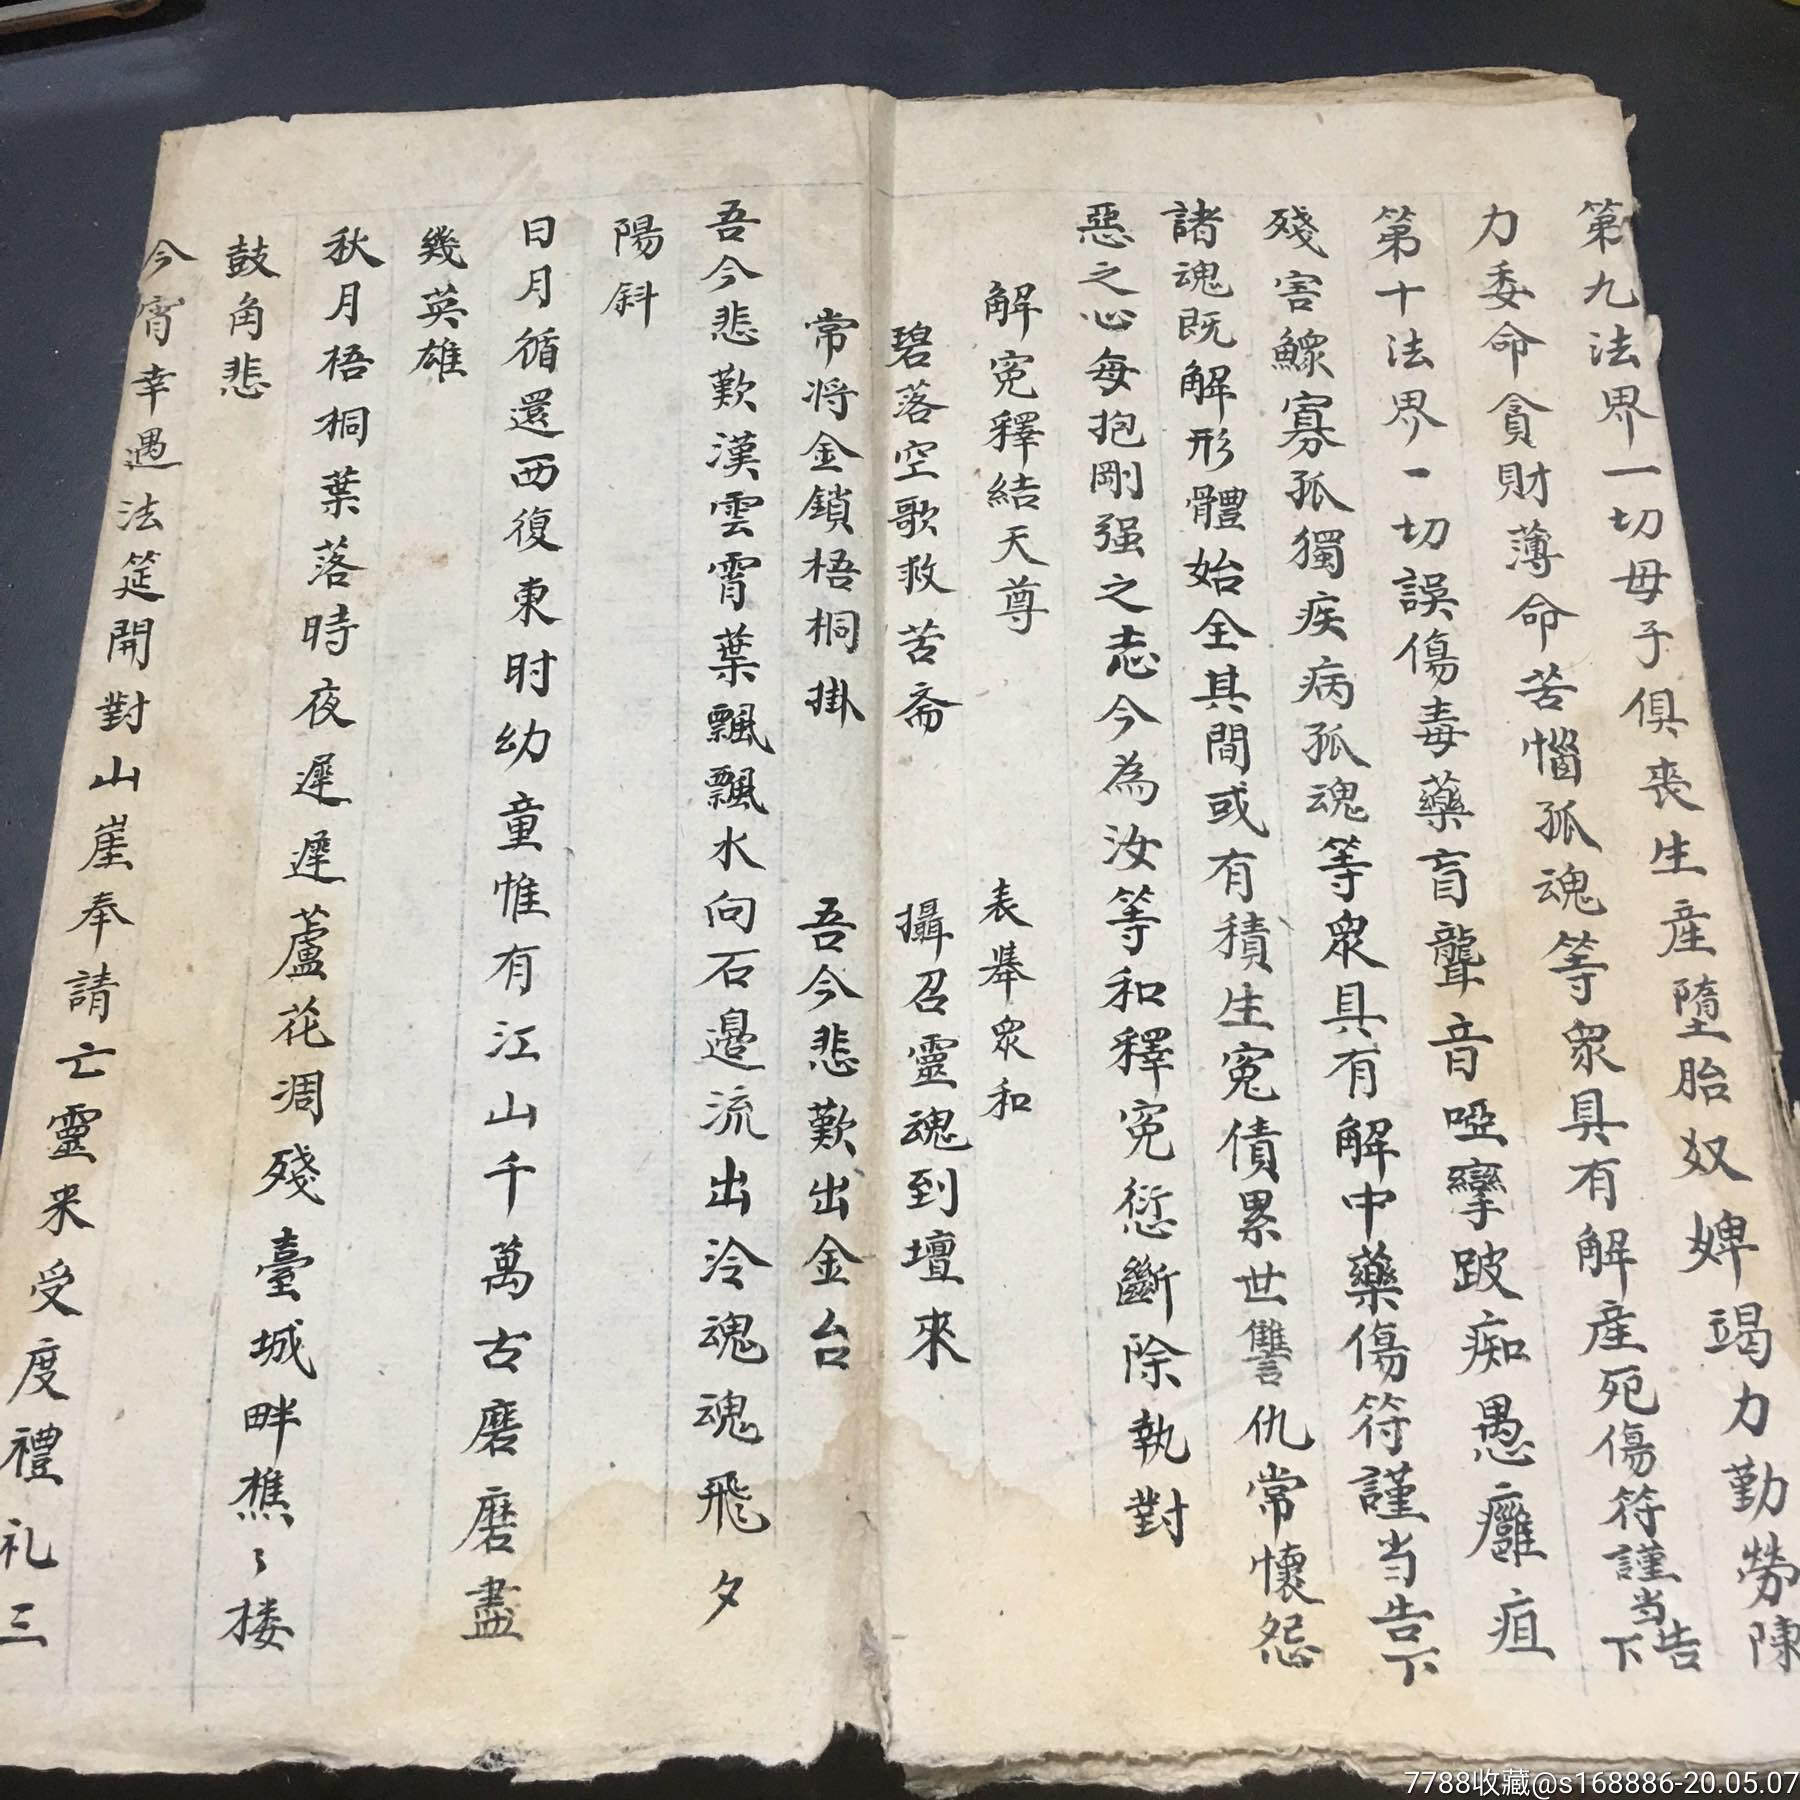 第九法界一切母子俱丧生産墮胎奴婢竭力勤勞陳
力委命貪財薄命苦惱孤魂等衆具有解産死傷符謹当告下
第十法界一切誤傷毒藥盲聾音啞攣跛痴愚癰疽
殘害鰥寡孤獨疾病孤魂等衆具有解中藥傷符謹当告下
諸魂既解形體始全其間或有積生冤債累世讐仇常懷怨
惡之心每抱剛强之志今為汝等和釋冤愆斷除執對
解冤釋結天尊 表舉衆和
碧落空歌救苦斋 攝召靈魂到壇來
常将金鎖梧桐掛 吾今悲歎出金台
吾今悲歎漢雲霄葉飄飄水向石邊流出泠魂魂飛夕
陽斜
日月循還西復東时幼童惟有江山千萬古磨磨盡
幾英雄
秋月梧桐葉落時夜遲遲蘆花凋殘臺城畔樵〻楼
鼓角悲
今宵幸遇法筵開對山崖奉請亡靈来受度禮礼三
7788收藏@s168886-20.05.07